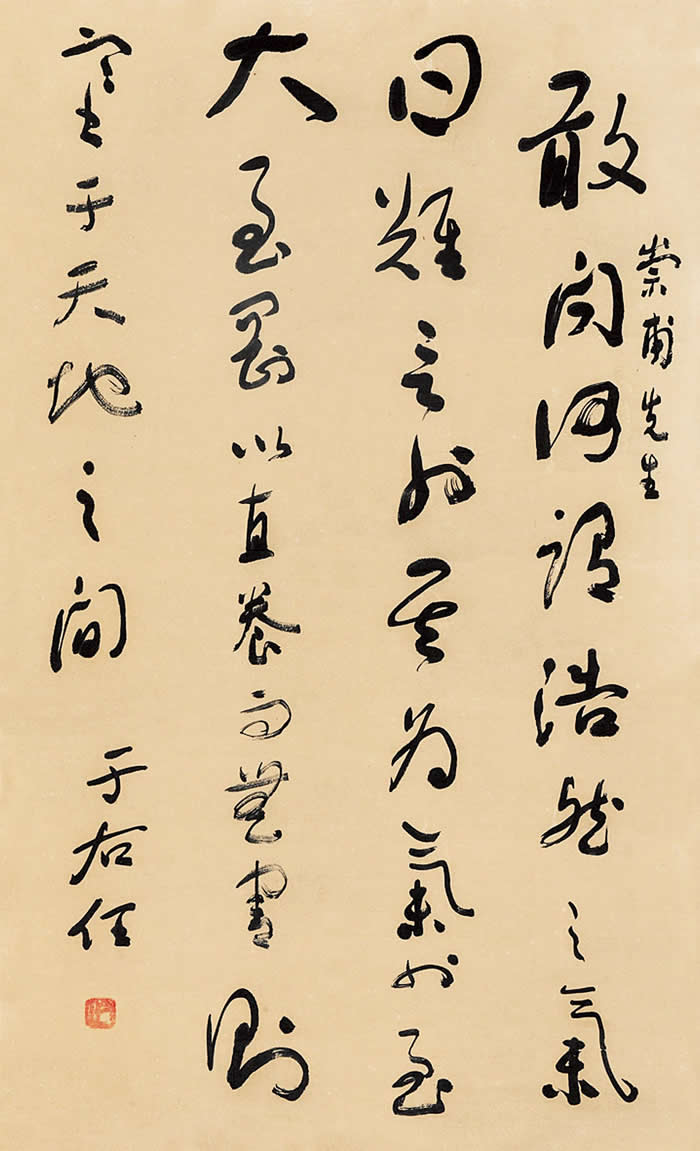 崇甫先生
敢問何謂浩然之氣
曰難言也其為氣也至
大至剛以直養而無害則
塞于天地之間
于右任